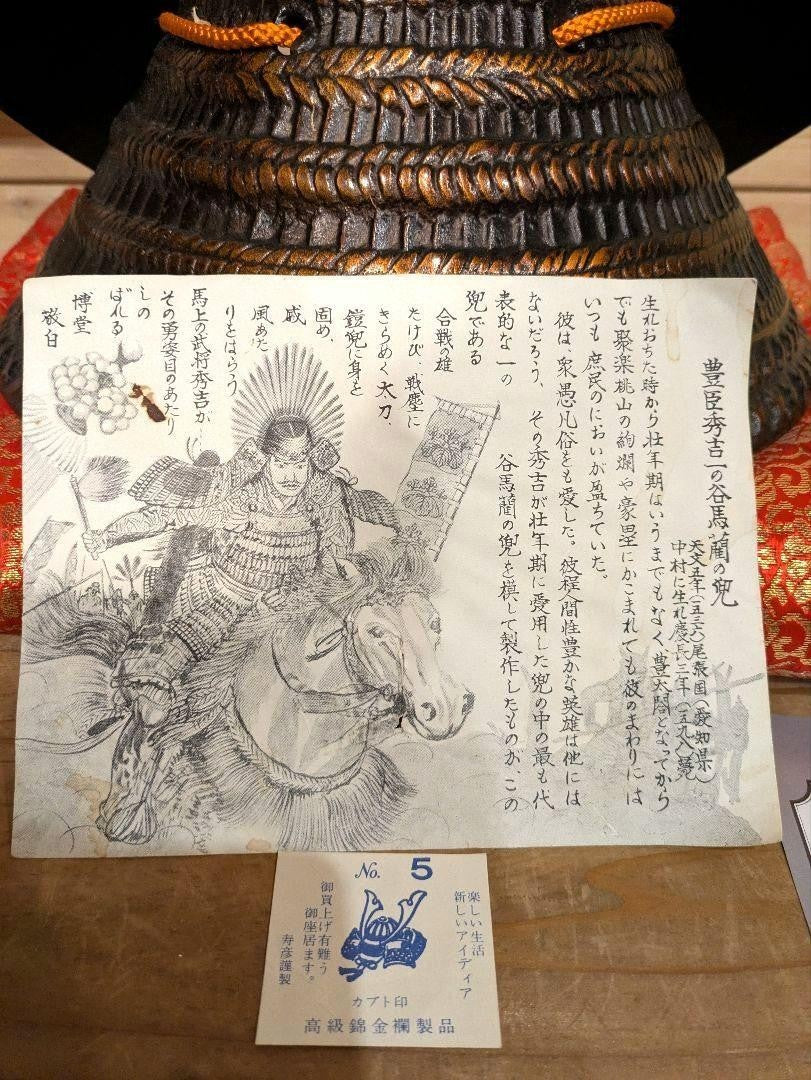 豊臣秀吉一の谷馬藺の兜
天文五年(一五三六)尾張国(愛知県)
中村に生れ慶長三年(一五九八)薨
生れおちた時から壮年期はいうまでもなく、豊太閤となってから
でも聚楽桃山の絢爛や豪壆にかこまれても彼のまわりには
いつも庶民のにおいが盈ちていた。
彼は、衆愚凡俗をも愛した。彼程人間性豊かな英雄は他には
ないだろう、その秀吉が壮年期に愛用した兜の中の最も代
表的な一の谷馬藺の兜を模して製作したものが、この
兜である
合戦の雄
たけび、戦塵に
きらめく太刀、
鎧兜に身を
固め、
威
風あた
りをはらう
馬上の武将秀吉が
その勇姿目のあたり
しの
ばれる
博堂
敬白
No. 5
楽しい生活
新しいアイディア
御買上げ有難う
御座居ます。
寿彦謹製
カブト印
高級錦金襴製品